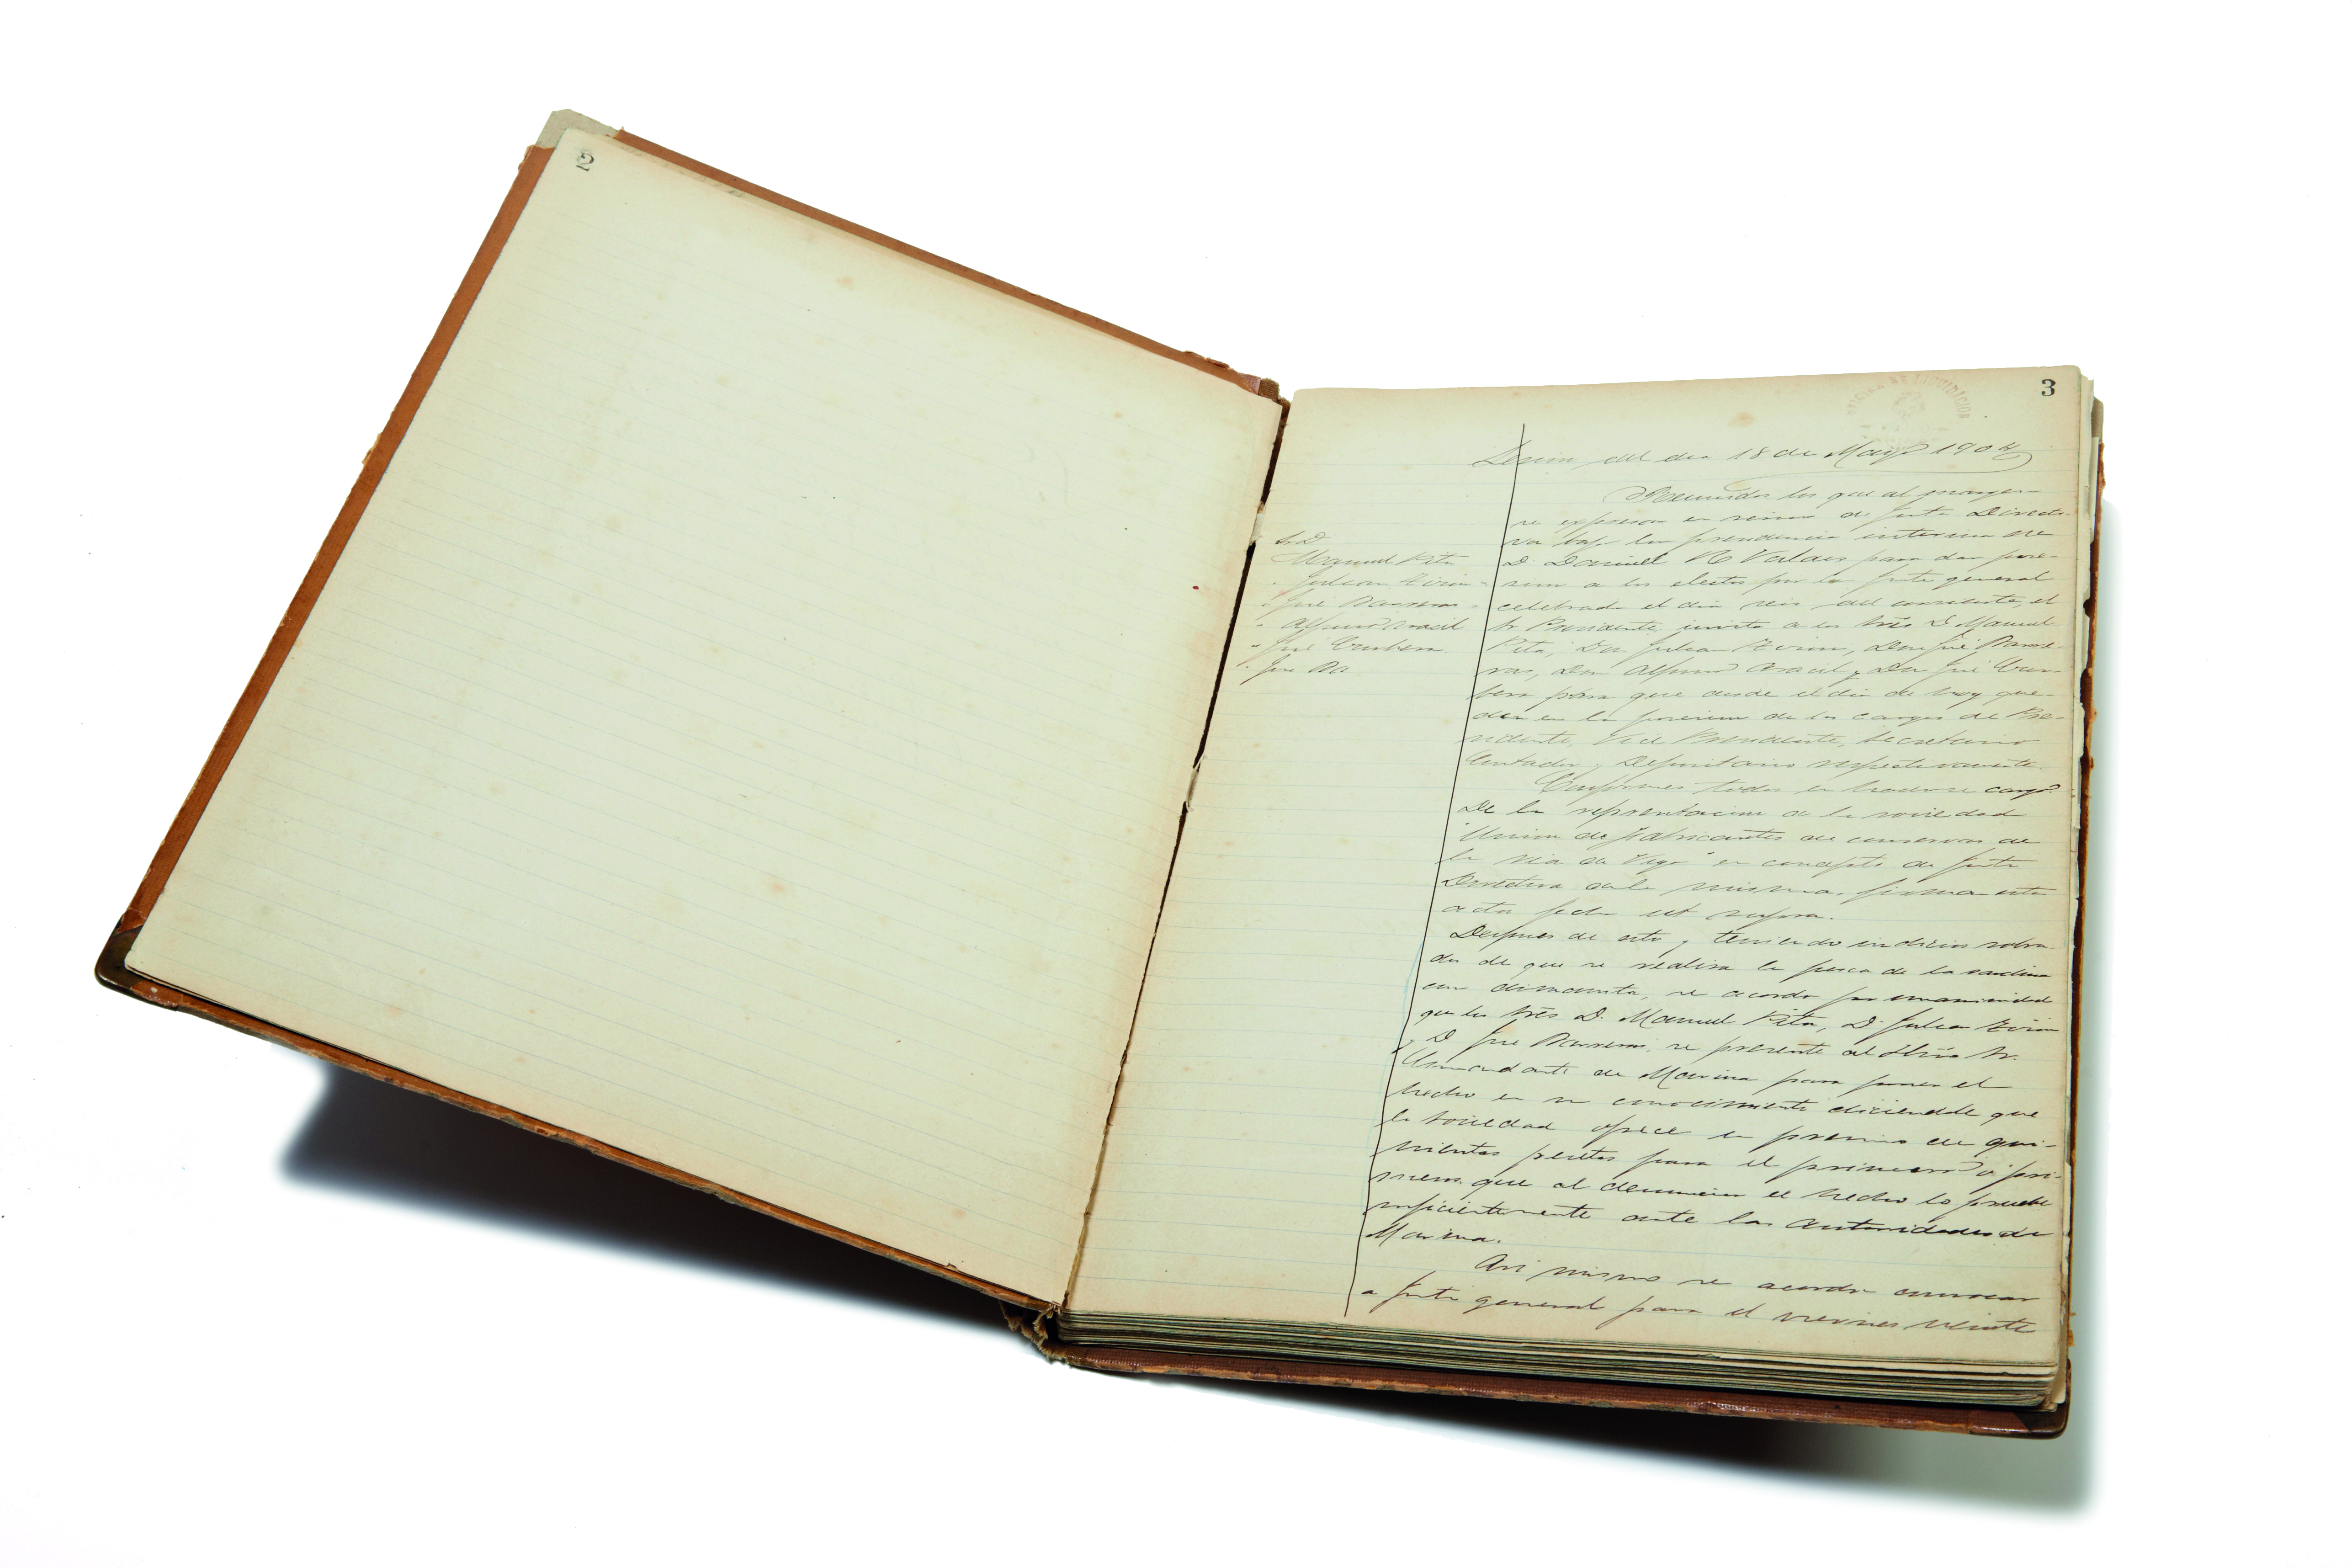 2
3
Sesion del dia 18 de Mayo 1904
Reunidos los que al margen
se expresan en sesion de Junta Directi-
va bajo la presidencia interina de
D. Daniel Valdes para dar pose-
sion a los electos por la Junta general
celebrada el dia seis del corriente, el
Sr Presidente invita a los Srés D. Manuel
Pita, Don Julian, Don José Barre-
ras, Don Alfonso Aracil y Don José
para que desde el dia de hoy que-
den en la posesion de los cargos de Pre-
sidente, Vice Presidente, Secretario
Contador y Depositario respectivamente.
Conformes todos en hacerse cargo
De la representacion de la sociedad
"Union de fabricantes de conservas de
la ria de Vigo" en concepto de Junta
Directiva de la misma, firman esta
acta fecha ut supra.
Despues de esto y teniendo indicios sobra-
dos de que se realiza la pesca de la sardina
con dinamita, se acordó por unanimidad
que los Srés D. Manuel Pita, D. Julian
y D José Barreras, se presente al Sr.
Comandante de Marina para poner el
hecho en su conocimiento diciendole que
la Sociedad ofrece un premio de qui-
nientas pesetas para el primero ó pri-
meros que al denunciar el hecho lo pruebe
suficientemente ante las autoridades de
Marina.
Asi mismo se acordó convocar
a Junta general para el viernes veinte
S.D.
Manuel Pita
" Julian
" José Barreras
" Alfonso Aracil
" José
" José